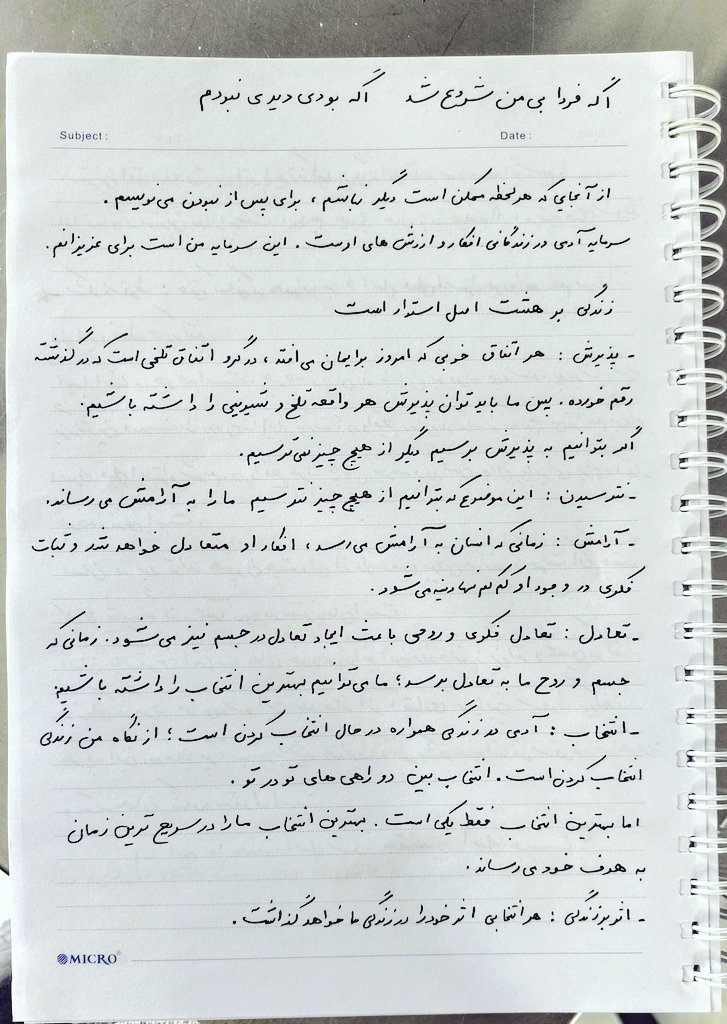 اگه فردا بی من شروع شد اگه بودی دیدی نبودم
Subject: Date:
از آنجایی که هر لحظه ممکن است دیگر نباشم، برای پس از نبودن می‌نویسم.
سرمایه آدمی در زندگانی افکار و ارزش های اوست. این سرمایه من است برای عزیزانم.
زندگی بر هشت اصل استوار است
- پذیرش : هر اتفاق خوبی که امروز برایمان می افتد، در گرو اتفاق تلخی است که در گذشته
رقم خورده. پس ما باید توان پذیرش هر واقعه تلخ و شیرینی را داشته باشیم.
اگر بتوانیم به پذیرش برسیم دیگر از هیچ چیز نمی‌ترسیم.
- نترسیدن : این موضوع که بتوانیم از هیچ چیز نترسیم ما را به آرامش می رساند.
- آرامش : زمانی که انسان به آرامش می رسد، افکار او متعادل خواهد شد و ثبات
فکری در وجود او کم کم نهادینه می شود.
- تعادل : تعادل فکری و روحی باعث ایجاد تعادل در جسم نیز می شود. زمانی که
جسم و روح ما به تعادل برسد؛ ما می توانیم بهترین انتخاب را داشته باشیم.
- انتخاب : آدمی در زندگی همواره در حال انتخاب کردن است؛ از نگاه من زندگی
انتخاب کردن است. انتخاب بین دو راهی های تو در تو.
اما بهترین انتخاب فقط یکی است. بهترین انتخاب ما را در سریع ترین زمان
به هدف خود می رساند.
- اثر بر زندگی : هر انتخابی اثر خود را در زندگی ما خواهد گذاشت.
MICRO